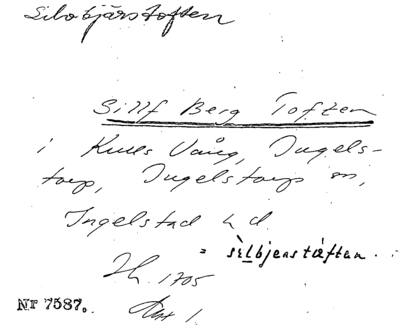 Silobjärstoften
Sillf Berg Toften
i Kules Vång, Ingels-
torp, Ingelstorp sn,
Ingelstad hd.
= sèlbjenstæften.
LH. 1705
Akt 1.
Nr 7587.